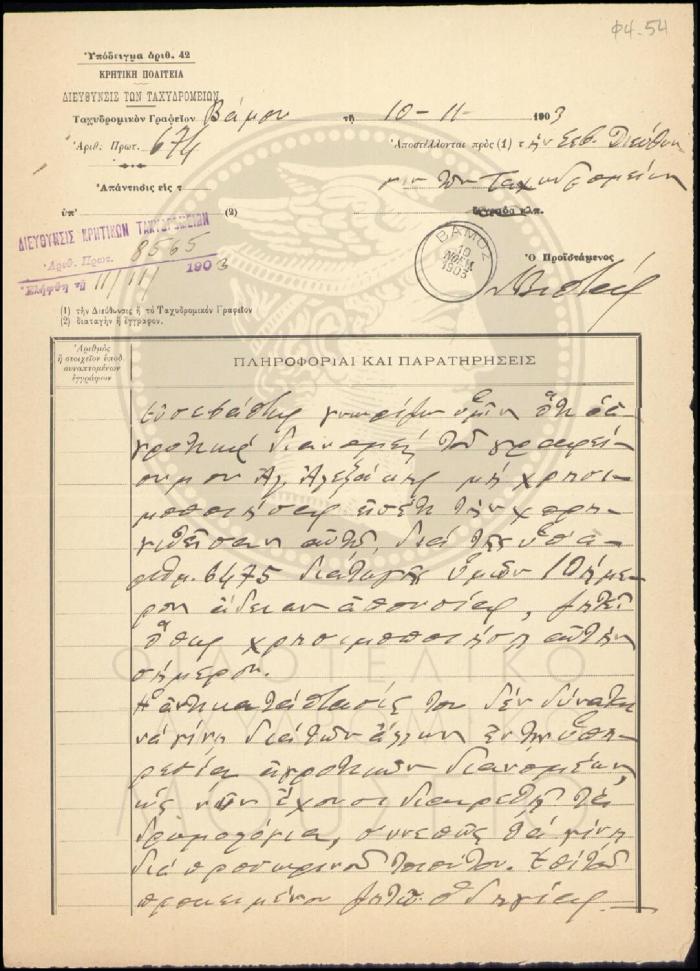 Φ4.54
Ὑπόδειγμα ἀριθ. 42
ΚΡΗΤΙΚΗ ΠΟΛΙΤΕΙΑ
ΔΙΕΥΘΥΝΣΙΣ ΤΩΝ ΤΑΧΥΔΡΟΜΕΙΩΝ
Ταχυδρομικὸν Γραφεῖον Βάμου τῇ 10-11- 1903
Ἀριθ. Πρωτ. 674
Ἀποστέλλονται πρὸς (1) τὴν Σεβ. Διεύθυν
σιν τῶν Ταχυδρομείων
Ἀπάντησις εἰς τ
ὑπ' (2)
ἔγγραφα κλπ.
ΔΙΕΥΘΥΝΣΙΣ ΚΡΗΤΙΚΩΝ ΤΑΧΥΔΡΟΜΕΙΩΝ
Ἀριθ. Πρωτ. 8565
Ἐλήφθη τῇ 11/11/ 1903
ΒΑΜΟΣ
10
ΝΟΕΜ
1903
Ὁ Προϊστάμενος
(1) τὴν Διεύθυνσις ἢ τὸ Ταχυδρομικὸν Γραφεῖον
(2) διαταγὴν ἢ ἔγγραφον.
Ἀριθμὸς
ἢ στοιχεῖον ὑποδ.
συναπτομένων
ἐγγράφων
ΠΛΗΡΟΦΟΡΙΑΙ ΚΑΙ ΠΑΡΑΤΗΡΗΣΕΙΣ
Εὐσεβάστως γνωρίζω ὑμῖν ὅτι ὁ ἀ-
γροτικὸς διανομεὺς τοῦ γραφεί-
ου μου Ἀλεξάκης μὴ χρησι-
μοποιήσας εἰσέτι τὴν χορη-
γηθεῖσαν αὐτῷ, διὰ τῆς ὑπ' ἀ-
ριθμ. 6475 διαταγῆς ὑμῶν 10ήμε-
ρον ἄδειαν ἀπουσίας, ζητεῖ
ὅπως χρησιμοποιήσῃ αὐτὴν
σήμερον.
Ἡ ἀντικατάστασίς του δὲν δύναται
νὰ γίνῃ διὰ τῶν ἄλλων ἐν τῇ ὑπη-
ρεσίᾳ ἀγροτικῶν διανομέων
ὡς νῦν ἔχουσι διαιρεθῆ τὰ
δρομολόγια, συνεπῶς θὰ γίνῃ
διὰ προσωρινοῦ τοιούτου. Ἐπὶ τοῦ
προκειμένου ζητῶ ὁδηγίας.
ΦΙΛΟΤΕΛΙΚΟ
ΤΑΧΥΔΡΟΜΙΚΟ
ΜΟΥΣΕΙΟ